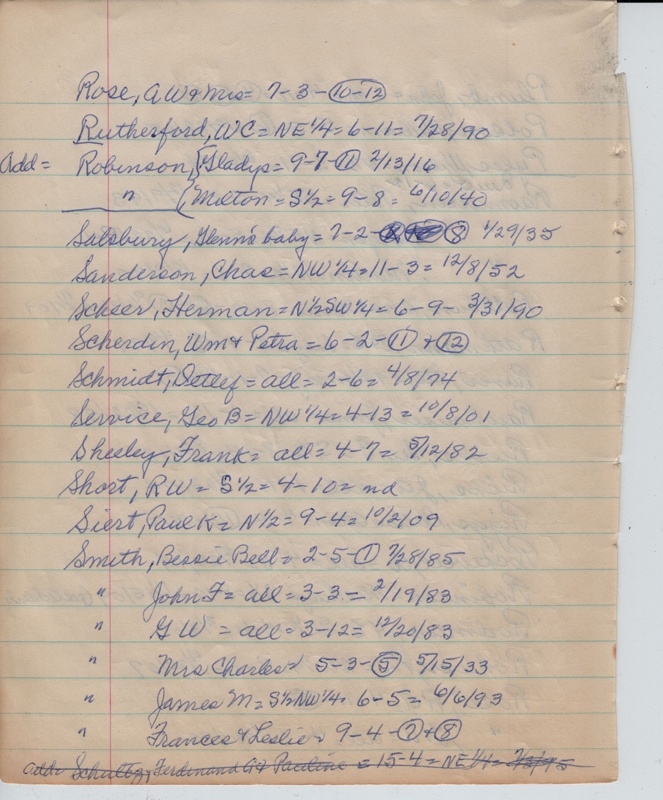 Rose, AW & Mrs = 7-3-(10-12)
Rutherford, WC = NE 1/4 = 6-11 = 7/28/90
Add = Robinson, Gladys = 9-7-(11) 2/13/16
" Milton = S 1/2 = 9-8 = 6/10/40
Salsbury, Glenn's baby = 7-2- (8) 1/29/35
Sanderson, Chas = NW 1/4 = 11-3 = 12/8/52
Scheer, Herman = N 1/2 SW 1/4 = 6-9- 3/31/90
Scherdin, Wm & Petra = 6-2-(11) + (12)
Schmidt, Detlef = all = 2-6 = 4/8/74
Service, Geo B = NW 1/4 = 4-13 = 10/8/01
Sheeley, Frank = all = 4-7 = 5/12/82
Short, RW = S 1/2 = 4-10 = nd
Siert, Paul K = N 1/2 = 9-4 = 10/2/09
Smith, Bessie Bell = 2-5-(1) 7/28/85
" John F = all = 3-3 = 2/19/83
" GW = all = 3-12 = 12/20/83
" Mrs Charles = 5-3-(5) 5/15/33
" James M = S 1/2 NW 1/4 = 6-5 = 6/6/93
" Frances & Leslie = 9-4-(7)+(8)
add = Schultz, Ferdinand & Pauline = 15-4 = NE 1/4 =